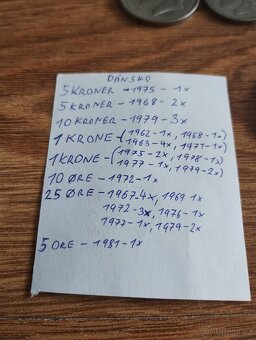 DÁNSKO
5 KRONER - 1975 - 1x
5 KRONER - 1968 - 2x
10 KRONER - 1979 - 3x
1 KRONE - (1962 - 1x, 1968 - 1x)
1963 - 4x, 1971 - 1x)
1 KRONE - (1975 - 2x, 1978 - 1x)
1977 - 1x, 1979 - 2x)
10 ØRE - 1972 - 1x
25 ØRE - 1967 - 4x, 1969 1x
1972 - 3x, 1976 - 1x
1977 - 1x, 1979 - 2x
5 ORE - 1981 - 1x